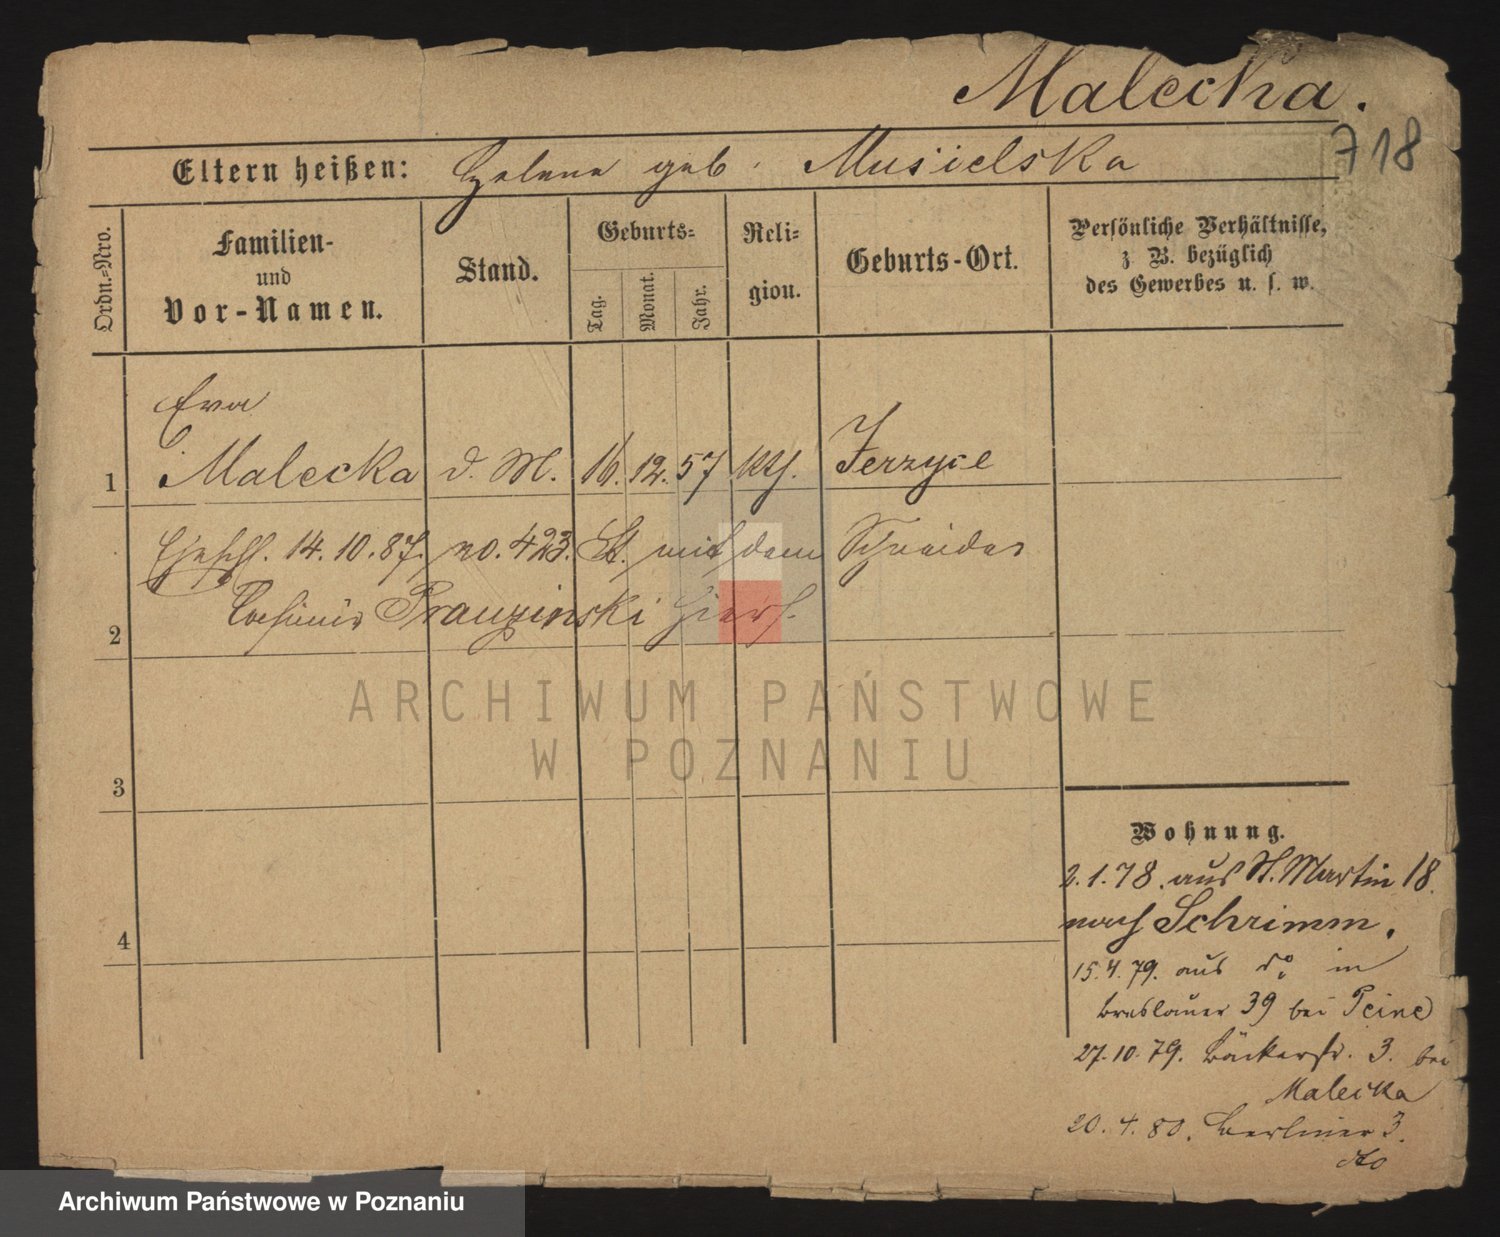 Malecka.
718
Eltern heißen: Helene geb. Musielska
Ordn.-Nro.
Familien-
und
Vor-Namen.
Stand.
Geburts-
Tag.
Monat.
Jahr.
Reli-
gion.
Geburts-Ort.
Persönliche Verhältnisse,
z. B. bezüglich
des Gewerbes u. s. w.
Eva
1 Malecka d. M. 16. 12. 57 kth. Jerzyce
Ehesch. 14.10.87. no. 423. St. mit dem Schneider
2 Prauzinski hiers.
ARCHIWUM PAŃSTWOWE
W POZNANIU
3
4
Wohnung.
2.1.78. aus St. Martin 18.
nach Schrimm.
15.4.79. aus do in
Breslauer 39 bei Peine
27.10.79. Bäckerstr. 3. bei
Malecka
20.4.80. Berliner 3.
dto
Archiwum Państwowe w Poznaniu